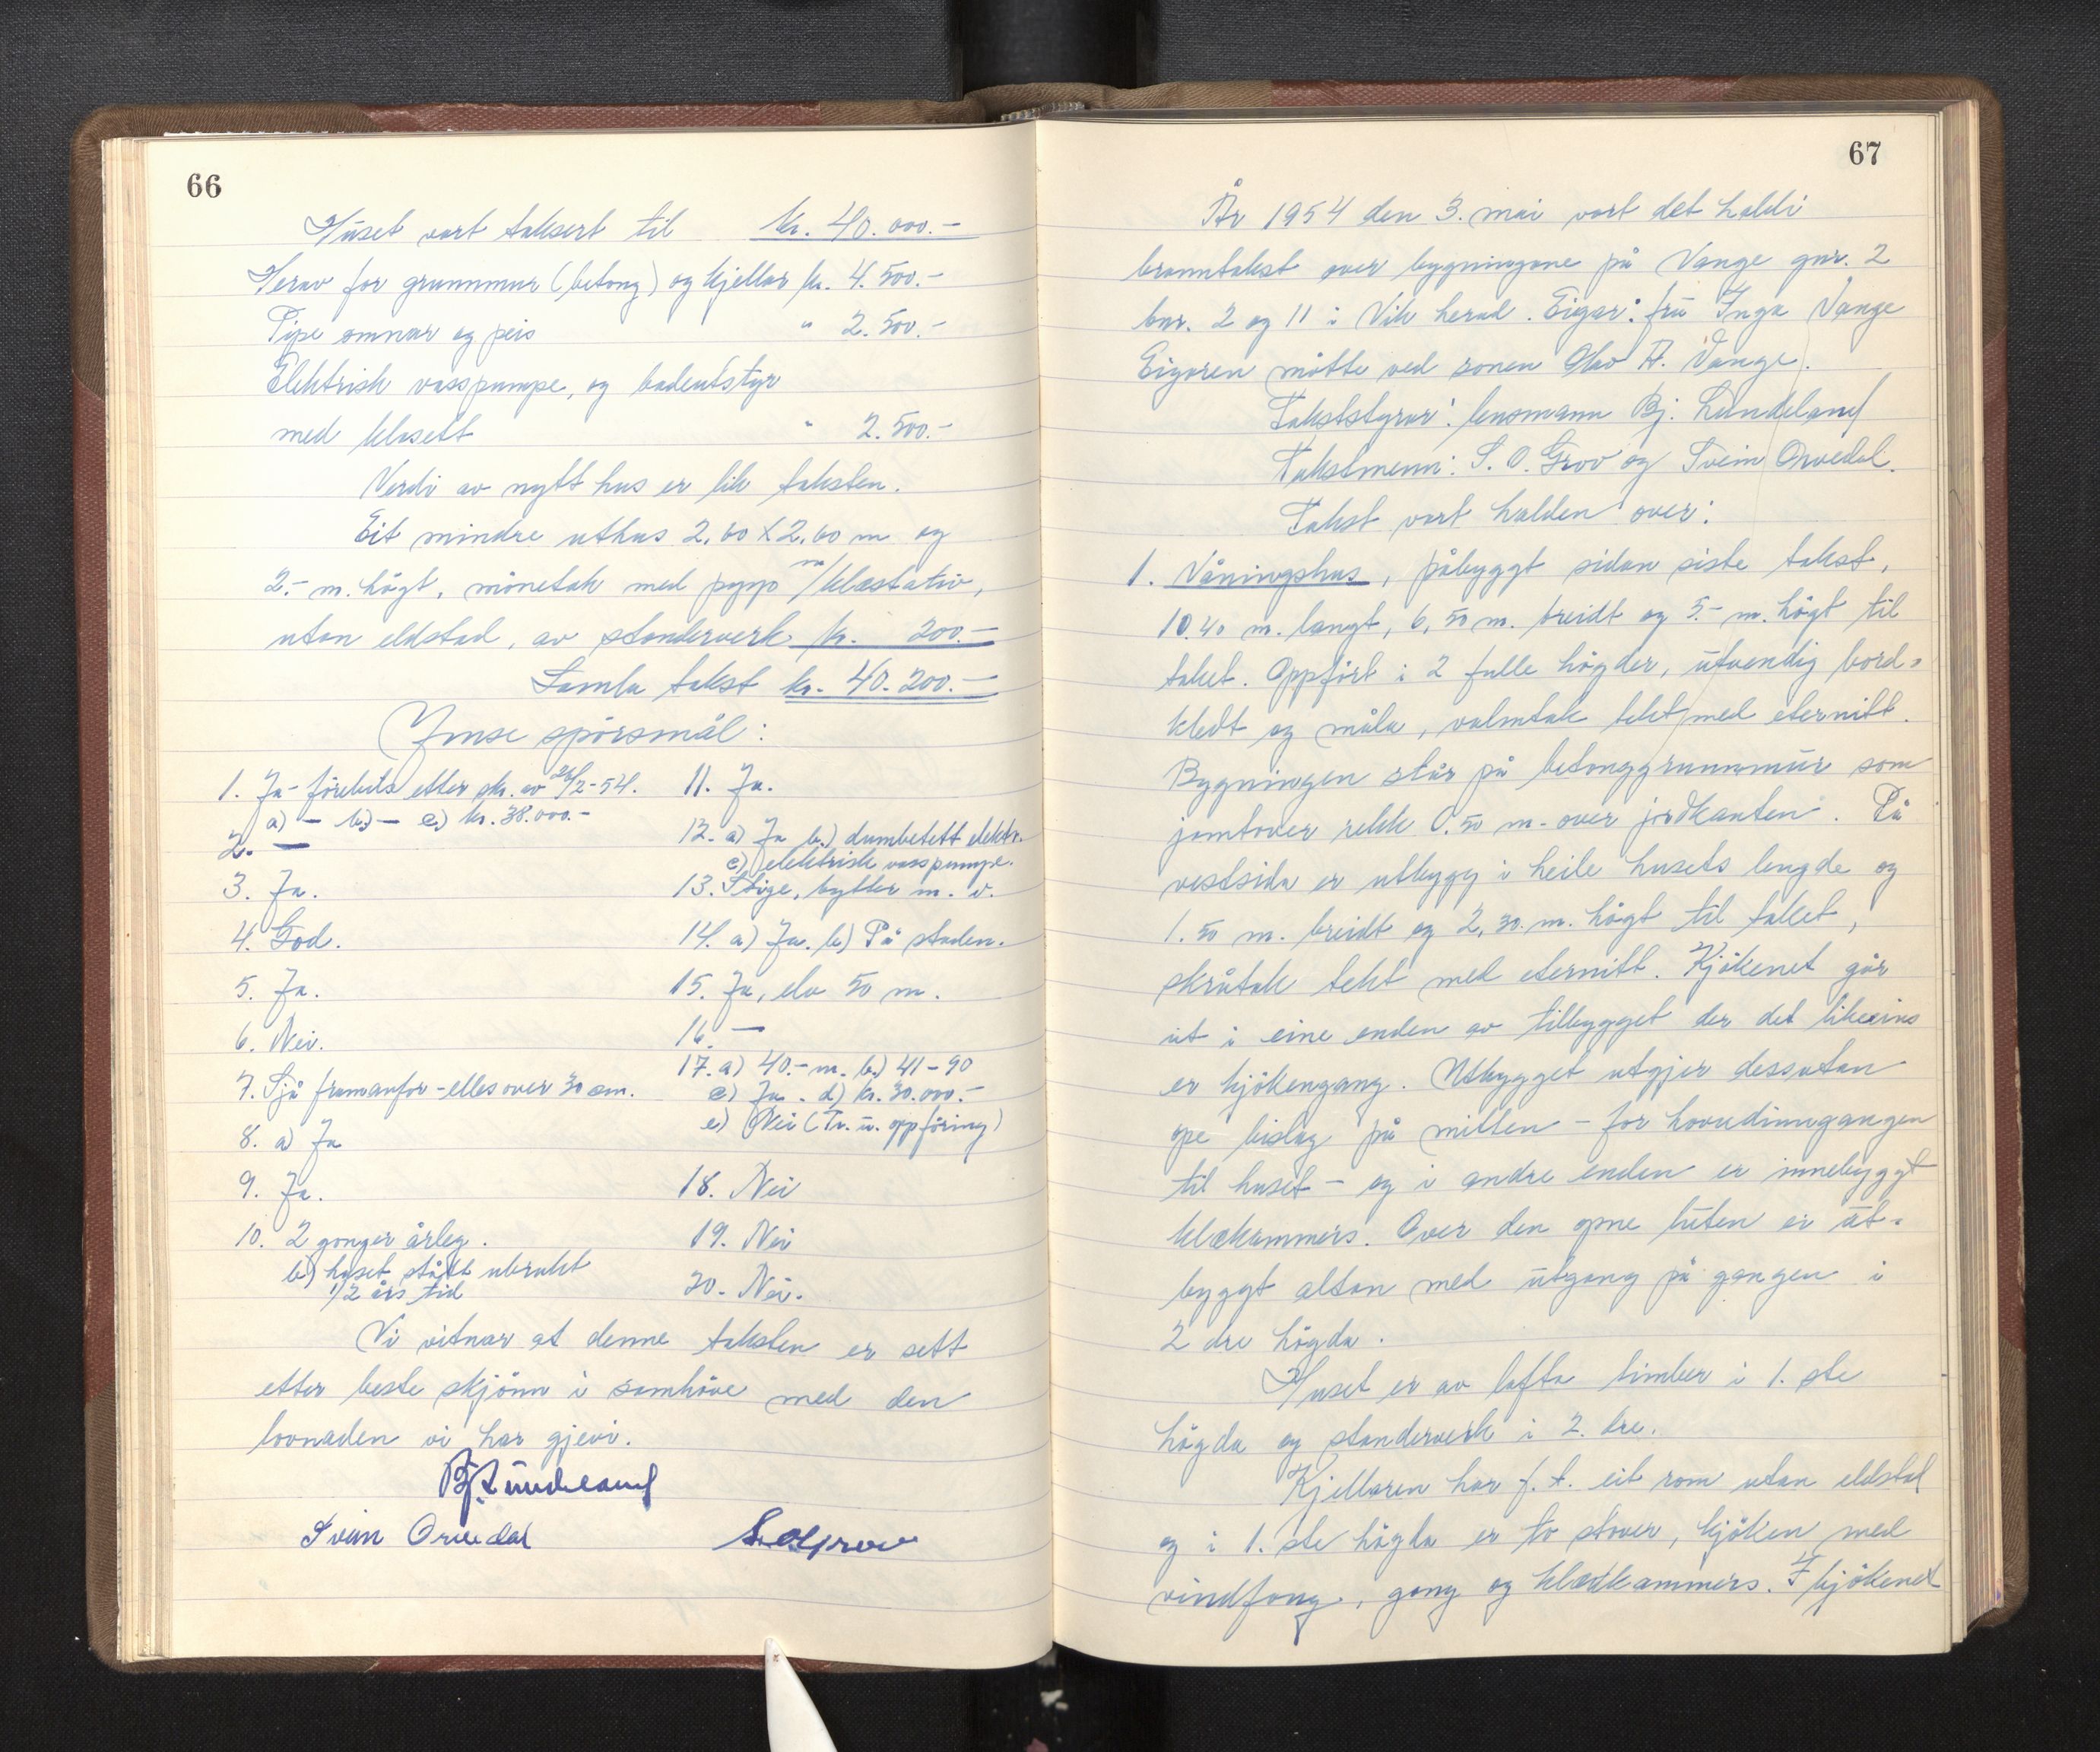 66
Huset vart taksert til kr. 40.000.-
Herav for grunnmur (betong) og kjellar kr. 4.500.-
Pipe omnar og peis " 2.500.-
Elektrisk vasspumpe, og badeutstyr
med klosett " 2.500.-
Verdi av nytt hus er lik taksten.
Eit mindre uthus 2,60 X 2,60 m og
2.- m. högt, mönetak med papp m/klæstativ,
utan eldstad, av stenderverk kr. 200.-
Samla takst kr. 40.200.-
Ymse spörsmål:
1. Ja - förebels etter skr. av 26/2-54.
a) - b) - c) kr. 38.000.-
2. -
3. Ja.
4. God.
5. Ja.
6. Nei.
7. Sjå framanfor - elles over 30 cm.
8. a) Ja
9. Ja.
10. 2 gonger årleg.
b) huset stått ubrukt
1/2 års tid
11. Ja.
12. a) Ja b) dambetett elektr.
c) elektrisk vasspumpe.
13. Stige, bytter m. v.
14. a) Ja. b) På staden.
15. Ja, elv 50 m.
16. -
17. a) 40.- m. b) 41-90
c) Ja. d) kr. 30.000.-
e) Nei (Tr. u. oppföring)
18. Nei
19. Nei
20. Nei.
Vi vitnar at denne taksten er sett
etter beste skjönn i samhöve med den
lovnaden vi har gjevi.
Bj. Lundeland
Svein Orvedal S. O. Grov
67
År 1954 den 3. mai vart det haldi
branntakst over bygningane på Vange gnr. 2
bnr. 2 og 11 i Vik herad. Eigar: fru Inga Vange
Eigaren mötte ved sonen Olav A. Vange.
Takststyrar: lensmann Bj. Lundeland
Takstmenn: S. O. Grov og Svein Orvedal.
Takst vart halden over:
1. Våningshus, påbyggt sidan siste takst,
10.40 m. langt, 6,50 m. breidt og 5.- m. högt til
taket. Oppfört i 2 fulle högder, utvendig bord-
kledt og måla, valmtak tekt med eternitt.
Bygningen står på betonggrunnmur som
jamtover rekk 0.50 m. over jordkanten. På
vestsida er utbygg i heile husets lengde og
1.50 m. breidt og 2,30. m. högt til taket,
skråtak tekt med eternitt. Kjökenet går
ut i eine enden av tilbygget der det likeeins
er kjökengang. Utbygget utgjer dessutan
ope bislag på mitten - for hovudinngangen
til huset - og i andre enden er innebyggt
klækammers. Over den opne luten er ut-
byggt altan med utgang på gangen i
2 dre högda.
Huset er av lafta timber i 1. ste
högda og stenderverk i 2. dre.
Kjellaren har f. t. eit rom utan eldstad
og i 1. ste högda er to stover, kjöken med
vindfang, gang og klædkammers. I kjökenet